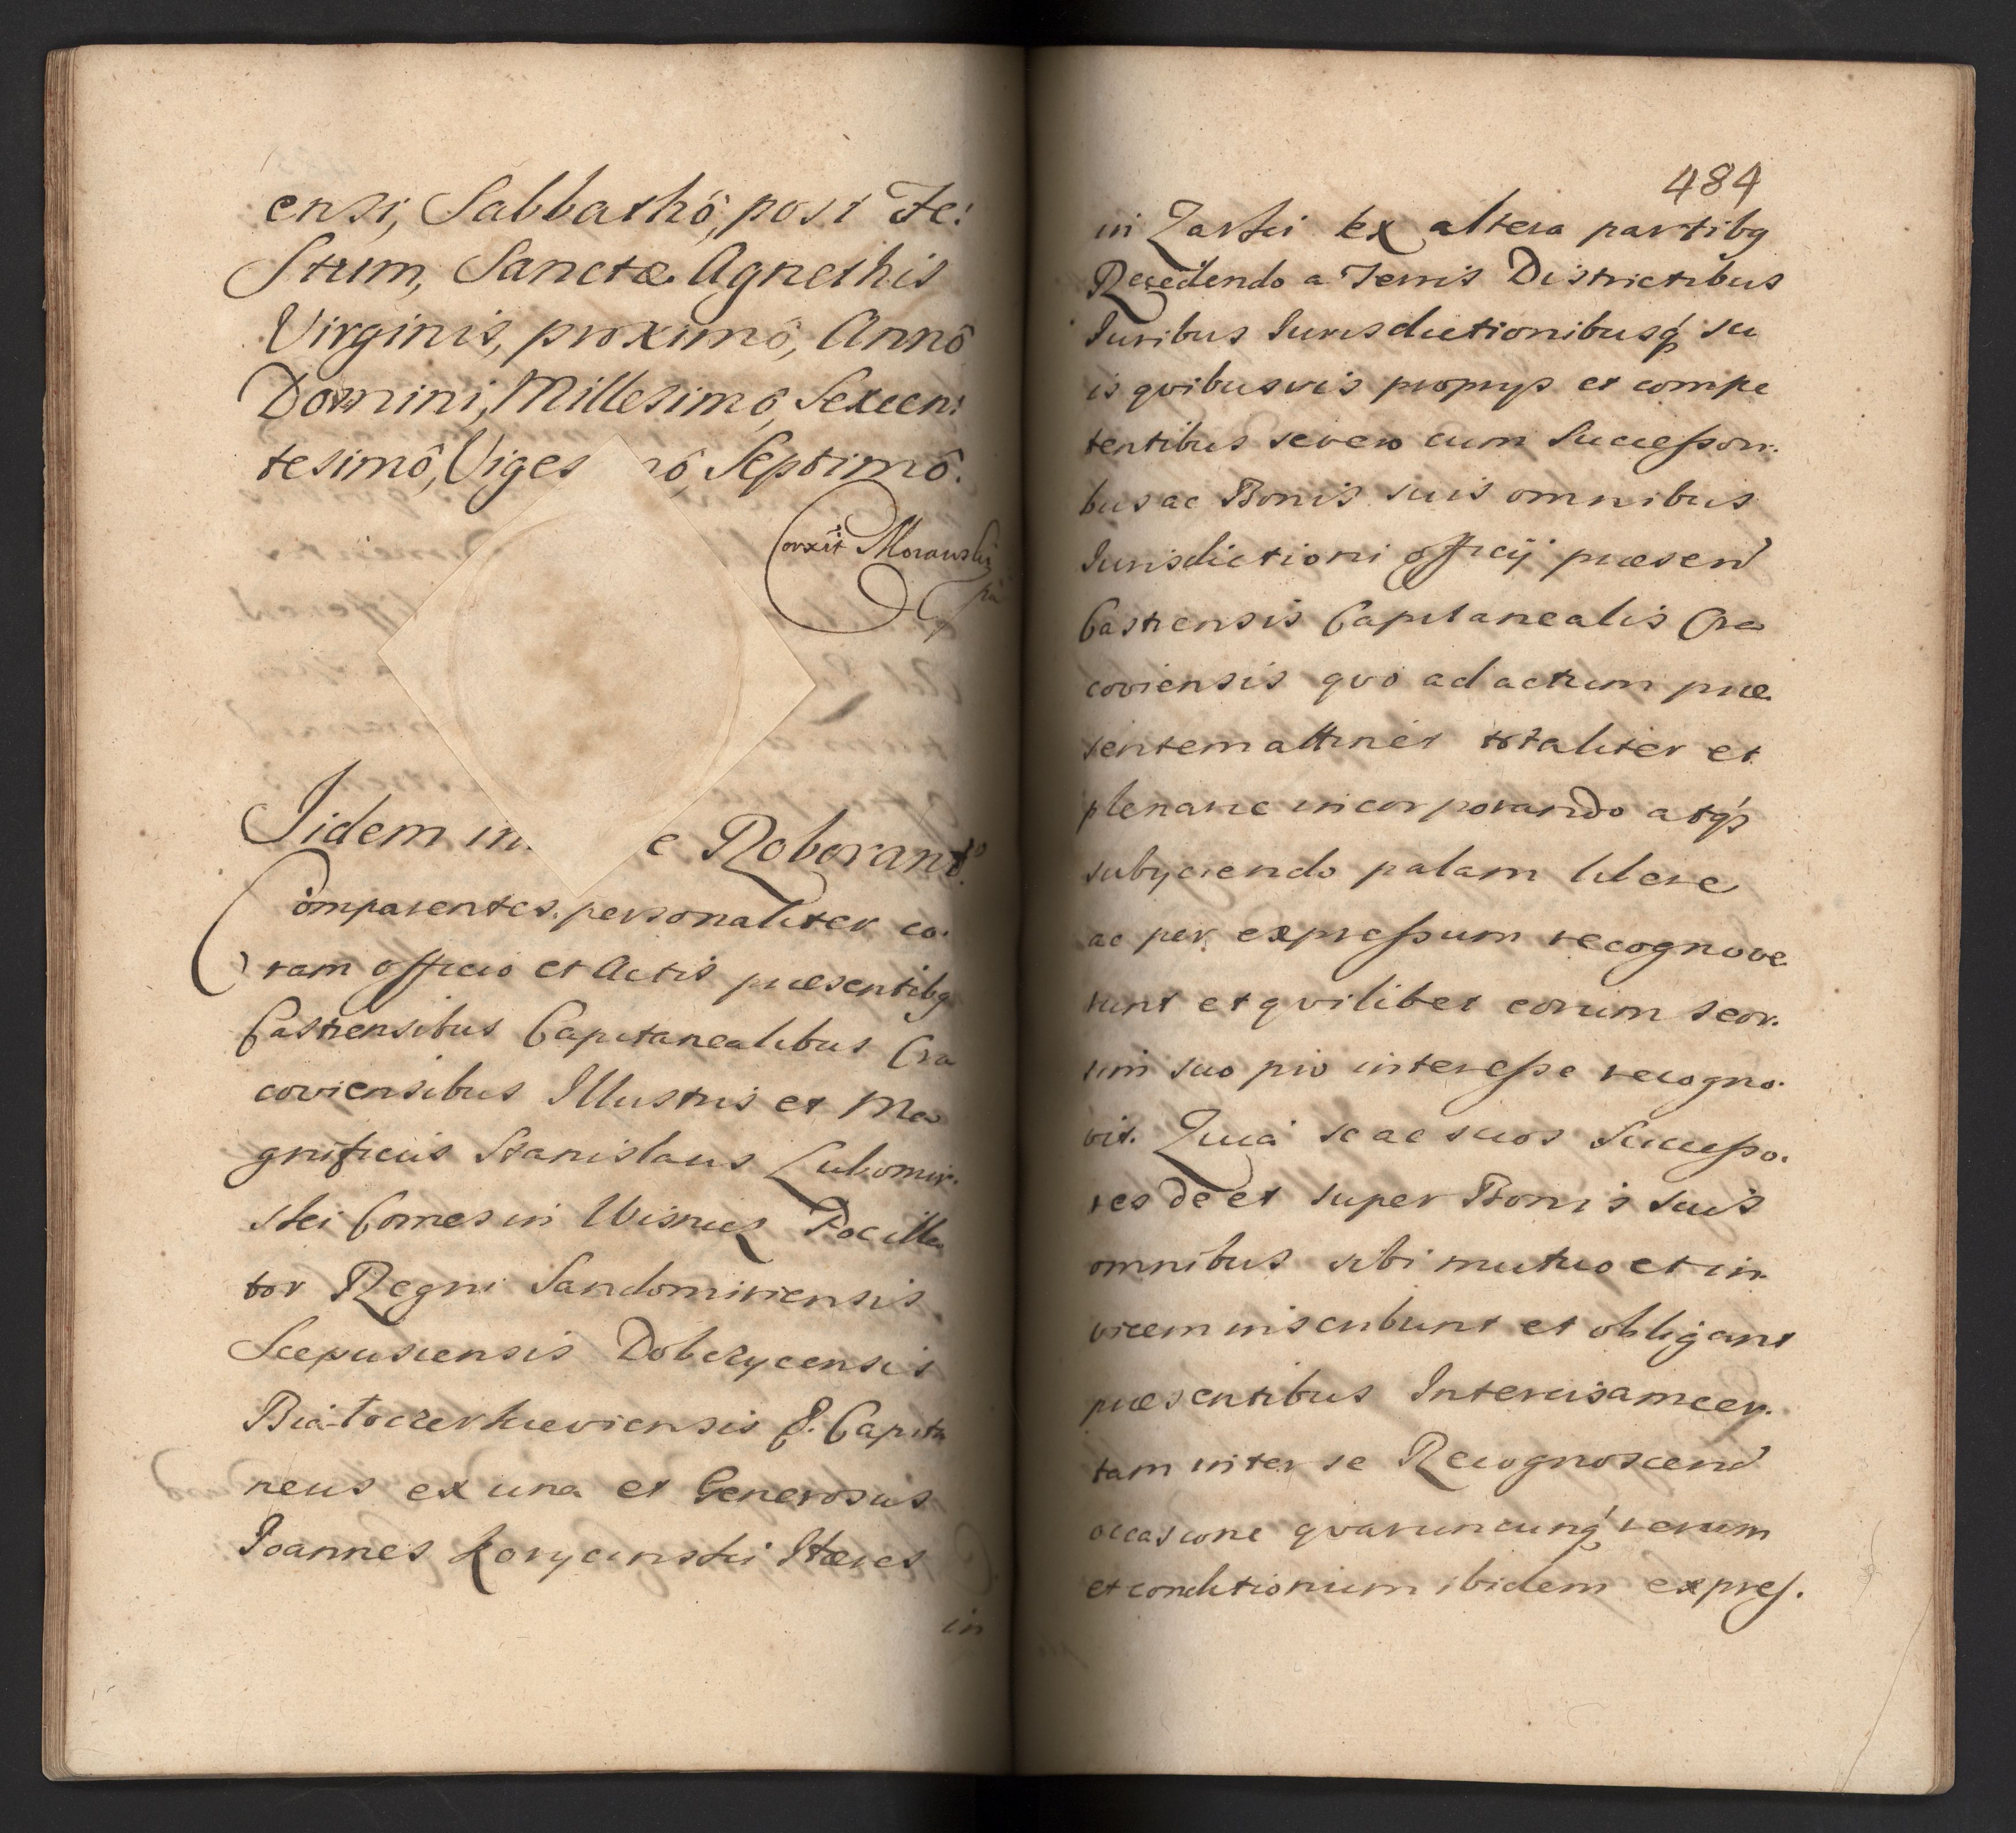 ensi, Sabbathô, post Fe:
Stum, Sanctæ Agnethis
Virginis, proximô, Annô
Domini, Millesimô, Sexcen:
tesimô, Viges nô, Septimô.
Corxit Morawski
Iidem in e Roborant
Comparentes personaliter co.
ram officio et Actis præsentibq
Castrensibus Capitanealibus Cra
coviensibus Illustris et Ma
gnificus Stanislaus Lubomir.
ski Comes in Wisnicz Pocilla
tor Regni Sandomiriensis
Scepusiensis Dobczycensis
Białocerkieviensis &. Capita
neus ex una et Generosus
Joannes Korycinski Hæres
in
484
in Zarski Ex altera partibq
Recedendo a Terris Districtibus
Iuribus Iurisdictionibusq su
is qvibusvis propriis et compe
tentibus seversO cum Successori.
bus ac Bonis suis omnibus
Iurisdictioni officij præsen
Castrensis Capitanealis Cra
coviensis qvo ad actum præ
sentem attinet totaliter et
plenarie incorporando atq
subyciendo palam libere
ac per expressum recognove
runt et qvilibet eorum seor.
sim suo pro interesse recogno.
vit. Quia se ac suos Successo.
res de et super Bonis suis
omnibus sibi mutuo et in
vicem inscribunt et obligant
præsentibus Intercisam cer.
tam inter se Recognoscen
occasione qvaruncunq rerum
et conditionum ibidem expres.